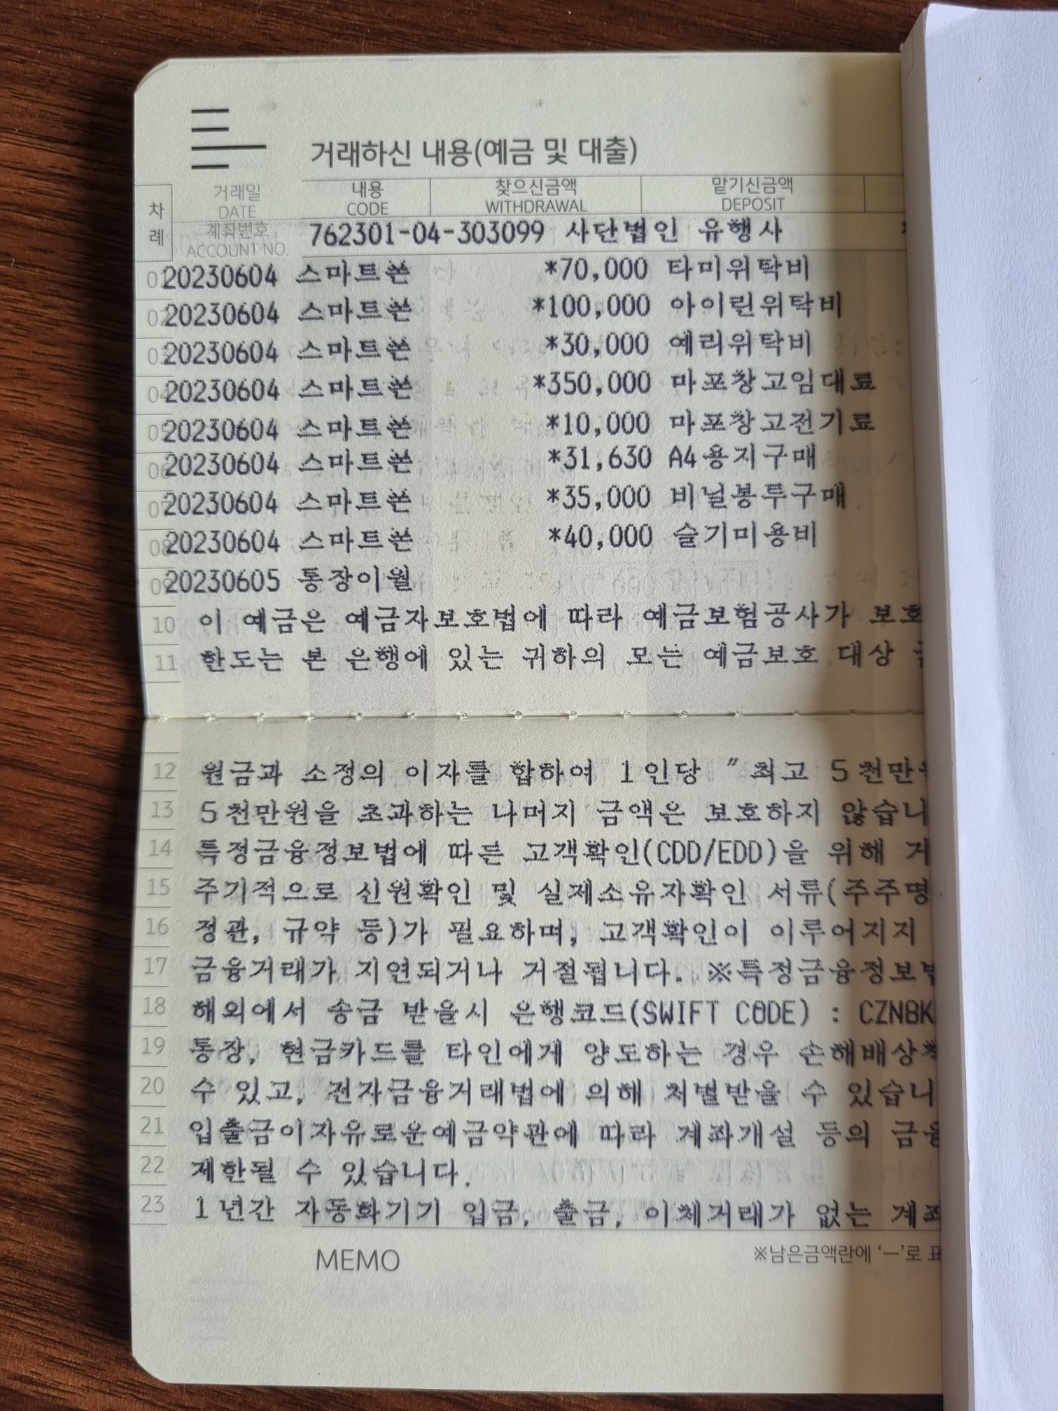 거래하신 내용(예금 및 대출)
차례 거래일 내용 찾으신금액 맡기신금액
DATE CODE WITHDRAWAL DEPOSIT
계좌번호
ACCOUNT NO.
762301-04-303099 사단법인 유행사
01 20230604 스마트쏜 *70,000 타미위탁비
02 20230604 스마트쏜 *100,000 아이린위탁비
03 20230604 스마트쏜 *30,000 예리위탁비
04 20230604 스마트쏜 *350,000 마포창고임대료
05 20230604 스마트쏜 *10,000 마포창고전기료
06 20230604 스마트쏜 *31,630 A4용지구매
07 20230604 스마트쏜 *35,000 비닐봉투구매
08 20230604 스마트쏜 *40,000 슬기미용비
09 20230605 통장이월
10 이 예금은 예금자보호법에 따라 예금보험공사가 보호
11 한도는 본 은행에 있는 귀하의 모든 예금보호 대상
12 원금과 소정의 이자를 합하여 1인당 "최고 5천만
13 5천만원을 초과하는 나머지 금액은 보호하지 않습니
14 특정금융정보법에 따른 고객확인(CDD/EDD)을 위해
15 주기적으로 신원확인 및 실제소유자확인 서류(주주명
16 정관, 규약 등)가 필요하며, 고객확인이 이루어지지
17 금융거래가 지연되거나 거절됩니다. ※특정금융정보
18 해외에서 송금 받을시 은행코드(SWIFT CODE) : CZNBK
19 통장, 현금카드를 타인에게 양도하는 경우 손해배상
20 수 있고, 전자금융거래법에 의해 처벌받을 수 있습니
21 입출금이자유로운예금약관에 따라 계좌개설 등의 금융
22 제한될 수 있습니다.
23 1년간 자동화기기 입금, 출금, 이체거래가 없는 계좌
MEMO ※남은금액란에 '—'로 표